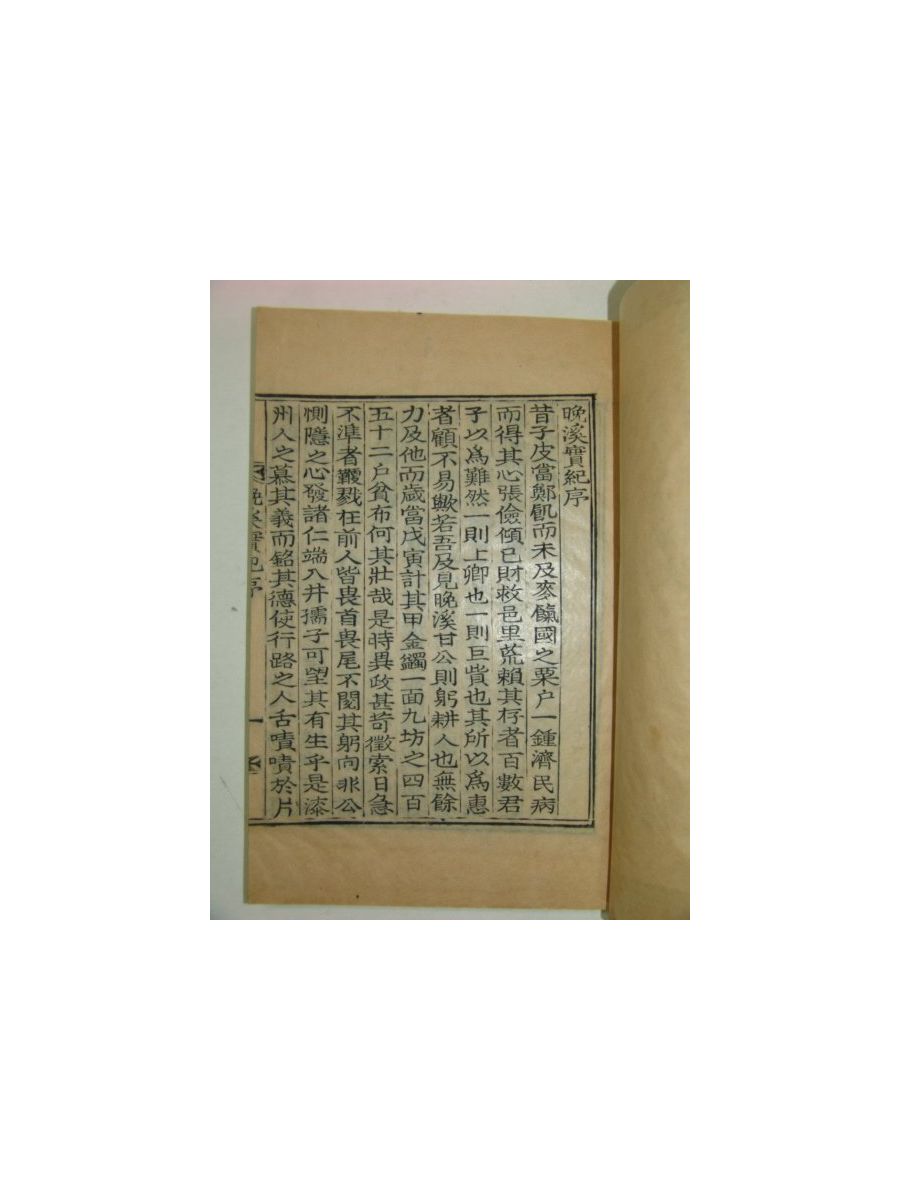 晩溪實紀序
昔子皮當鄭飢而未及麥餼國之粟户一鍾濟民病
而得其心張儉傾已財救邑里荒賴其存者百數君
子以爲難然一則上卿也一則巨貲也其所以爲惠
者顧不易歟若吾及見晩溪甘公則躬耕人也無餘
力及他而歲當戊寅計其甲金蠲一面九坊之四百
五十二戶貧布何其壯哉是時異政甚苛徵索日急
不準者戮在前人皆畏首畏尾不閱其躬向非公
惻隱之心發諸仁端入井孺子可望其有生乎是漆
州人之慕其義而銘其德使行路之人舌嘖嘖於片
晩溪實紀序
一